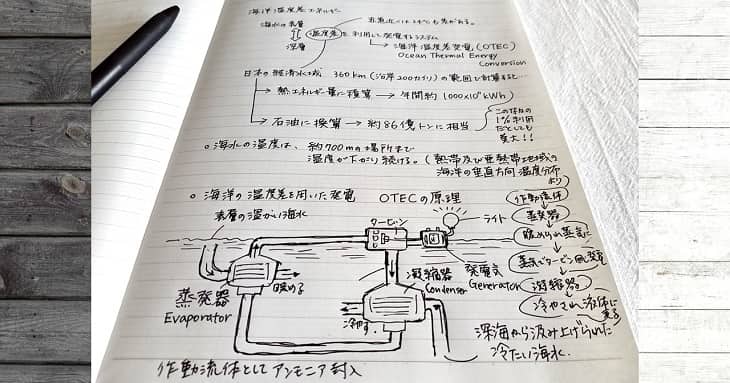 海洋温度差エネルギー
海水の表層
深層
温度差を利用して発電するシステム
海洋温度差発電 (OTEC)
Ocean Thermal Energy
Conversion
日本の経済水域 360km (沿岸200カイリ) の範囲で計算すると…
熱エネルギー量に積算 → 年間約
石油に換算 → 約86億トンに相当
この存在の
1%利用
だとしても
莫大!!
○海水の温度は、約700mの場所まで
温度が下がり続ける。(熱帯及び亜熱帯地域の
海洋の垂直方向温度分布
より
○海洋の温度差を用いた発電 OTECの原理
表層の温かい海水
タービン
ライト
蒸発器
Evaporator
暖める
凝縮器
Condenser
冷やす
発電式
Generator
作動流体
蒸発器
暖められ蒸気に
蒸気でタービン回し発電
凝縮器
冷やされ液体に
戻る
深海から汲み上げられた
冷たい海水.
作動流体としてアンモニア封入